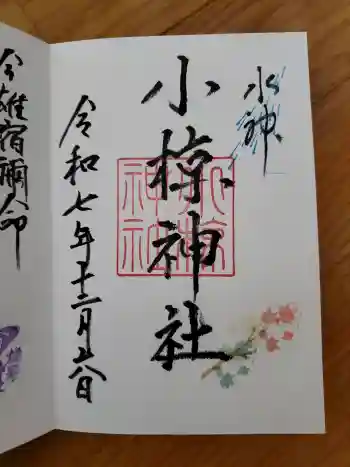 水神
小椋神社
小椋
神社
令和七年十二月 日
今雄宿禰命